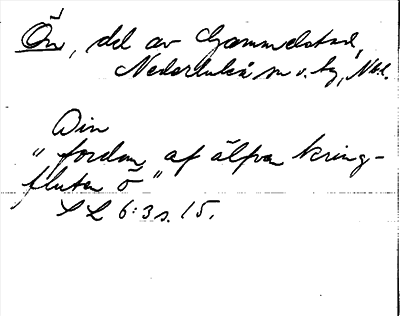 Ön, del av Gammelstad,
Nederluleå sn o. hg, Nbl.
Din
"fordom af älfven kring-
fluten ö"
SL 6:3 s. 15.